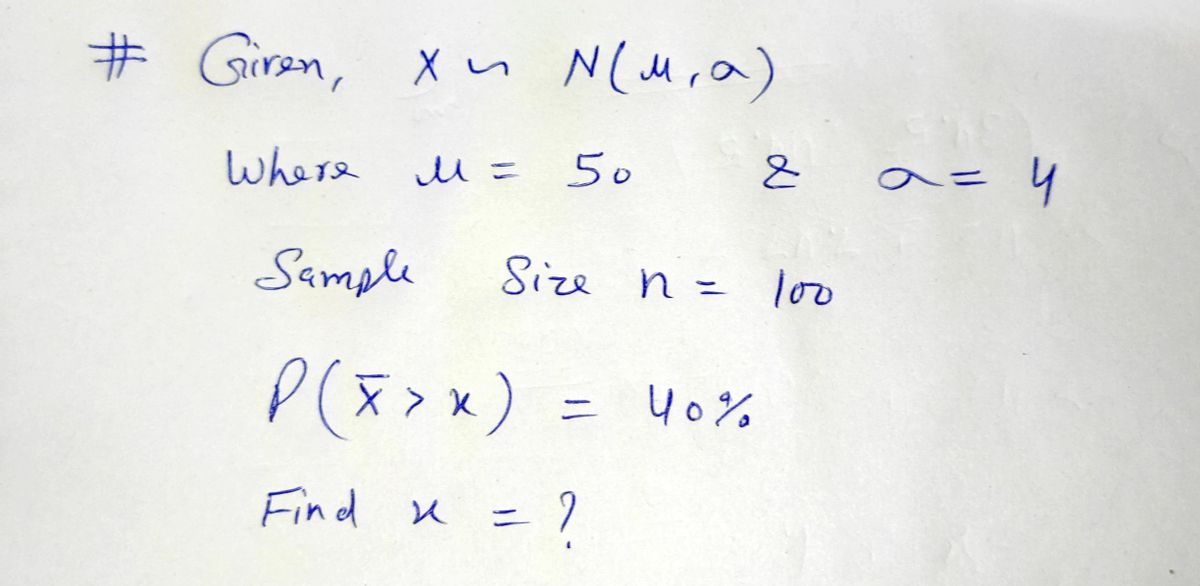 # Given, X ~ N(μ, σ)
Where μ = 50 & σ = 4
Sample Size n = 100
P(x̄ > x) = 40%
Find x = ?